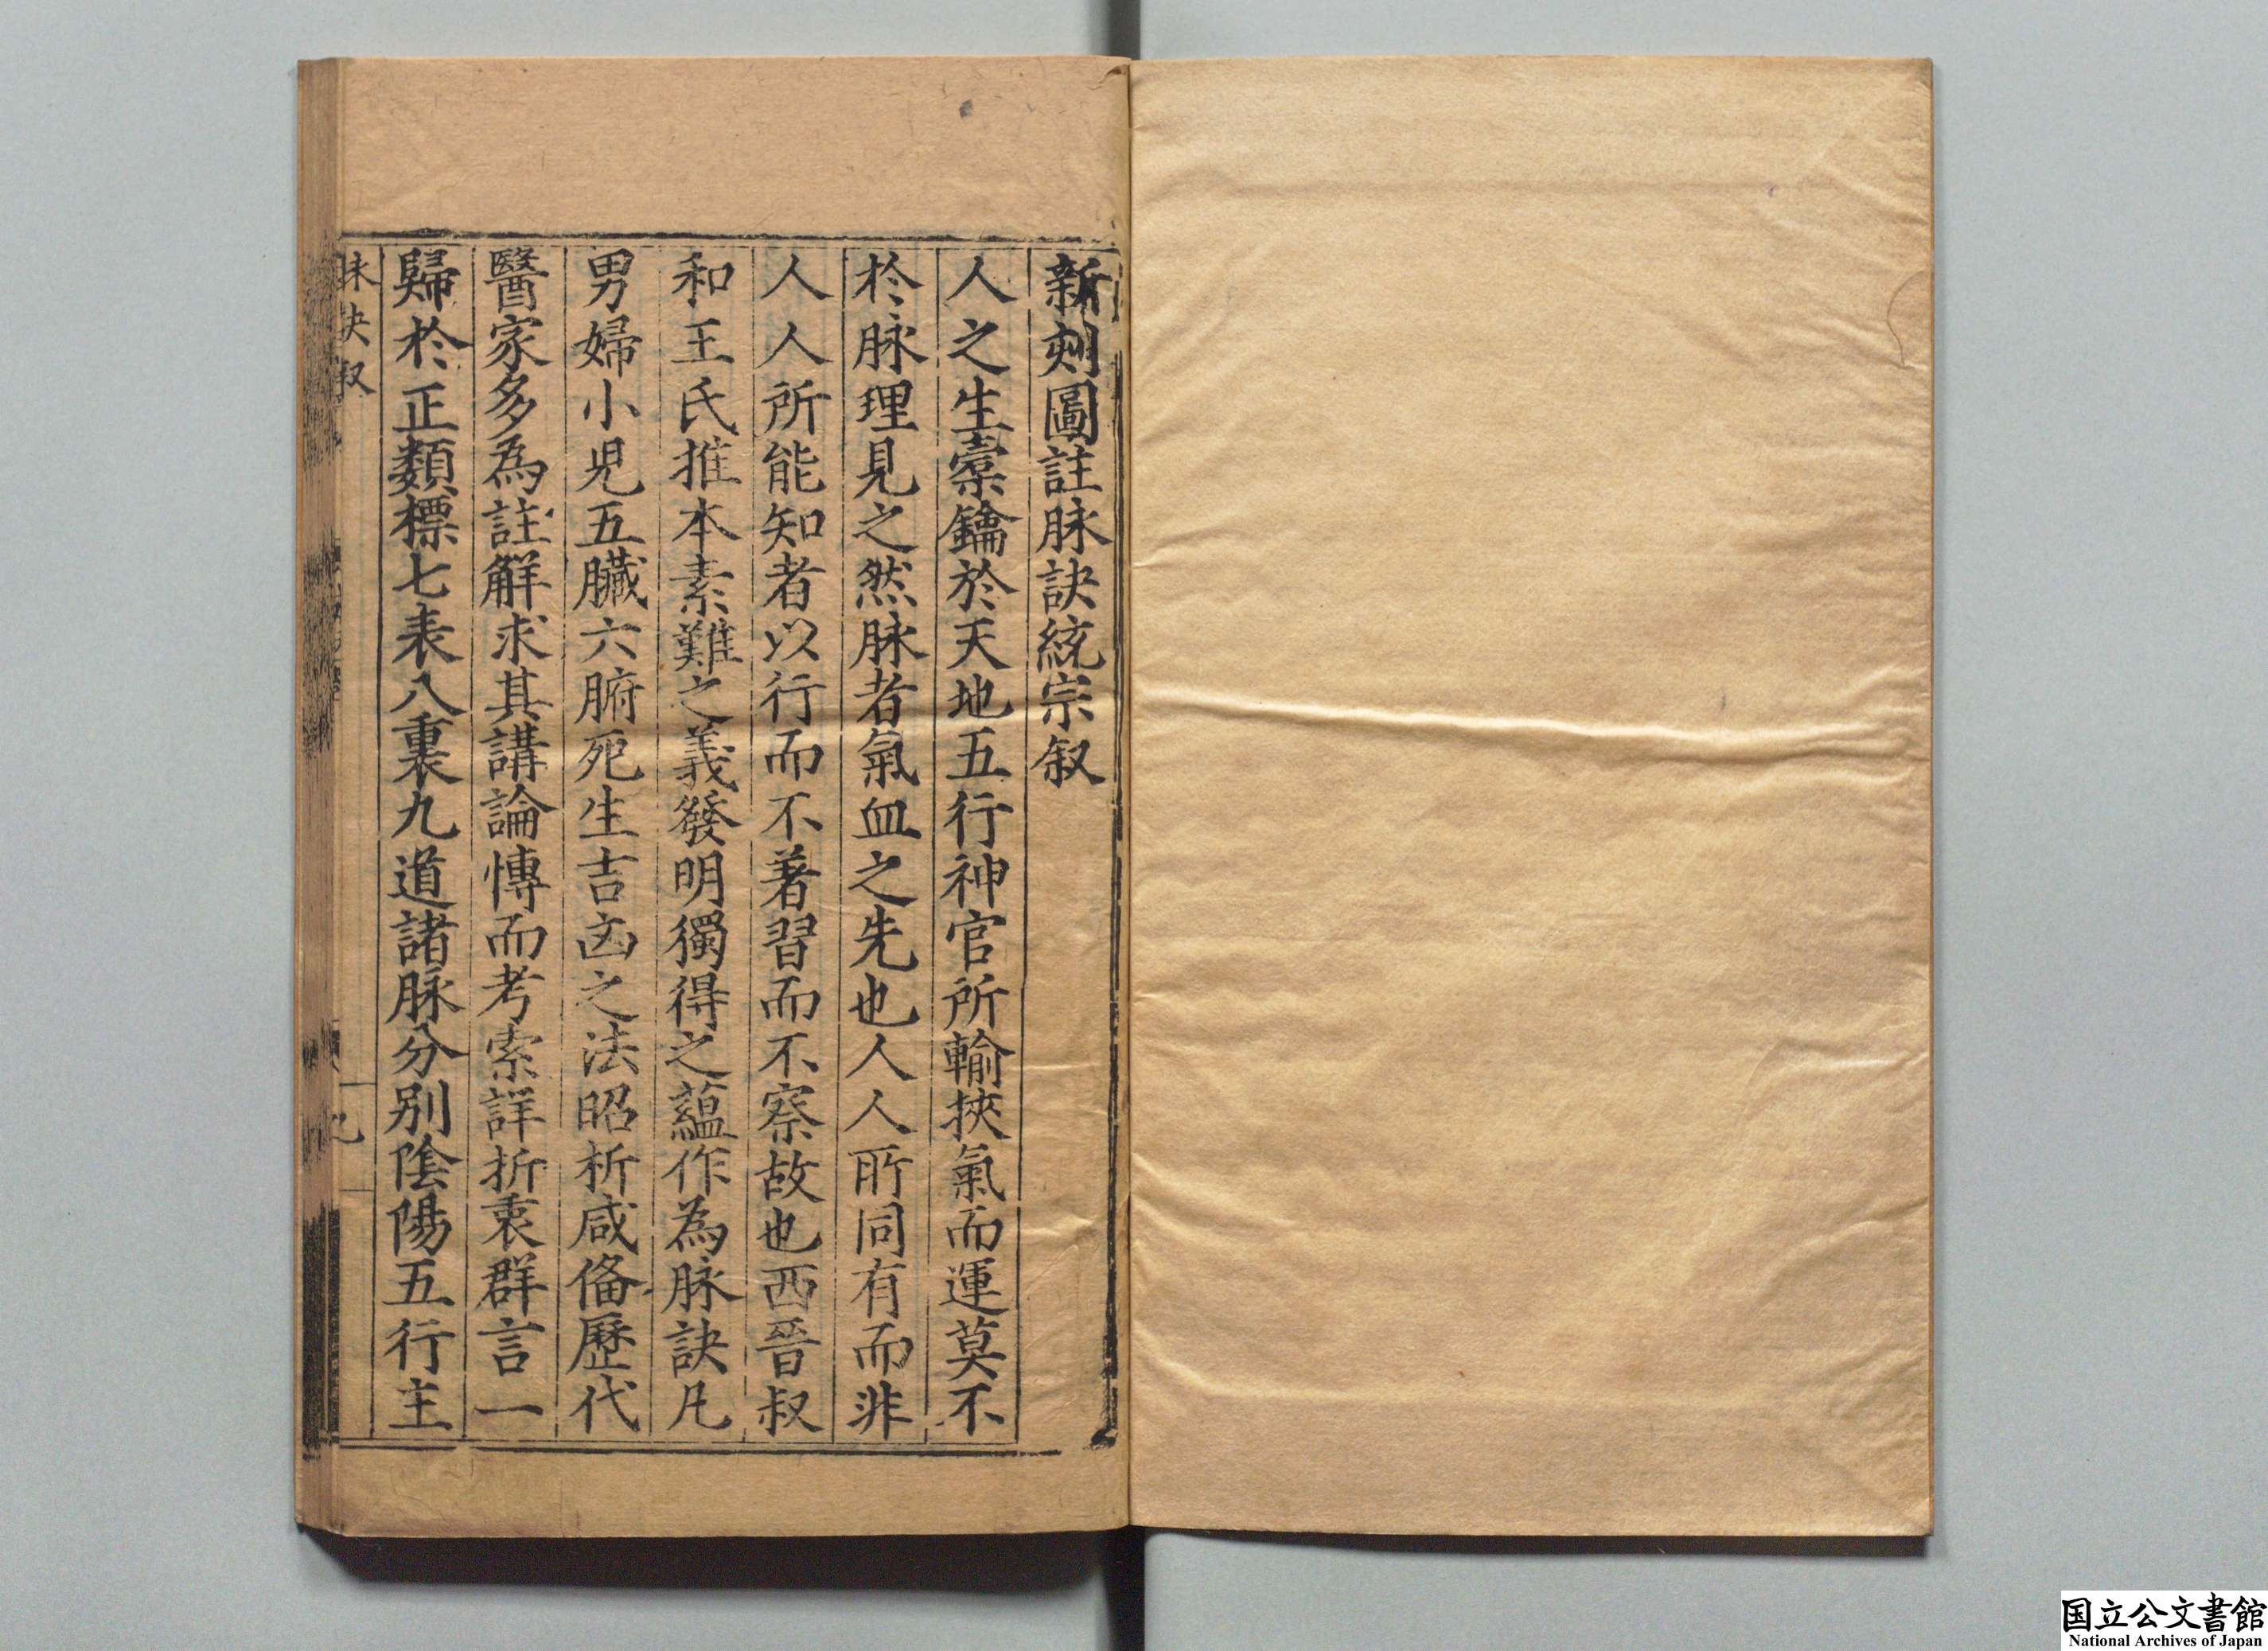 新刻圖註脉訣統宗叙
人之生橐鑰於天地五行神官所輸挾氣而運莫不
於脉理見之然脉者氣血之先也人人所同有而非
人人所能知者以行而不著習而不察故也西晉叔
和王氏推本素難之義發明獨得之蘊作為脉訣凡
男婦小児五臟六腑死生吉凶之法昭析咸俻歷代
醫家多為註觧求其講論愽而考索詳折衷群言一
歸於正類標七表八裏九道諸脉分別陰陽五行主
訣叙
国立公文書館
National Archives of Japan